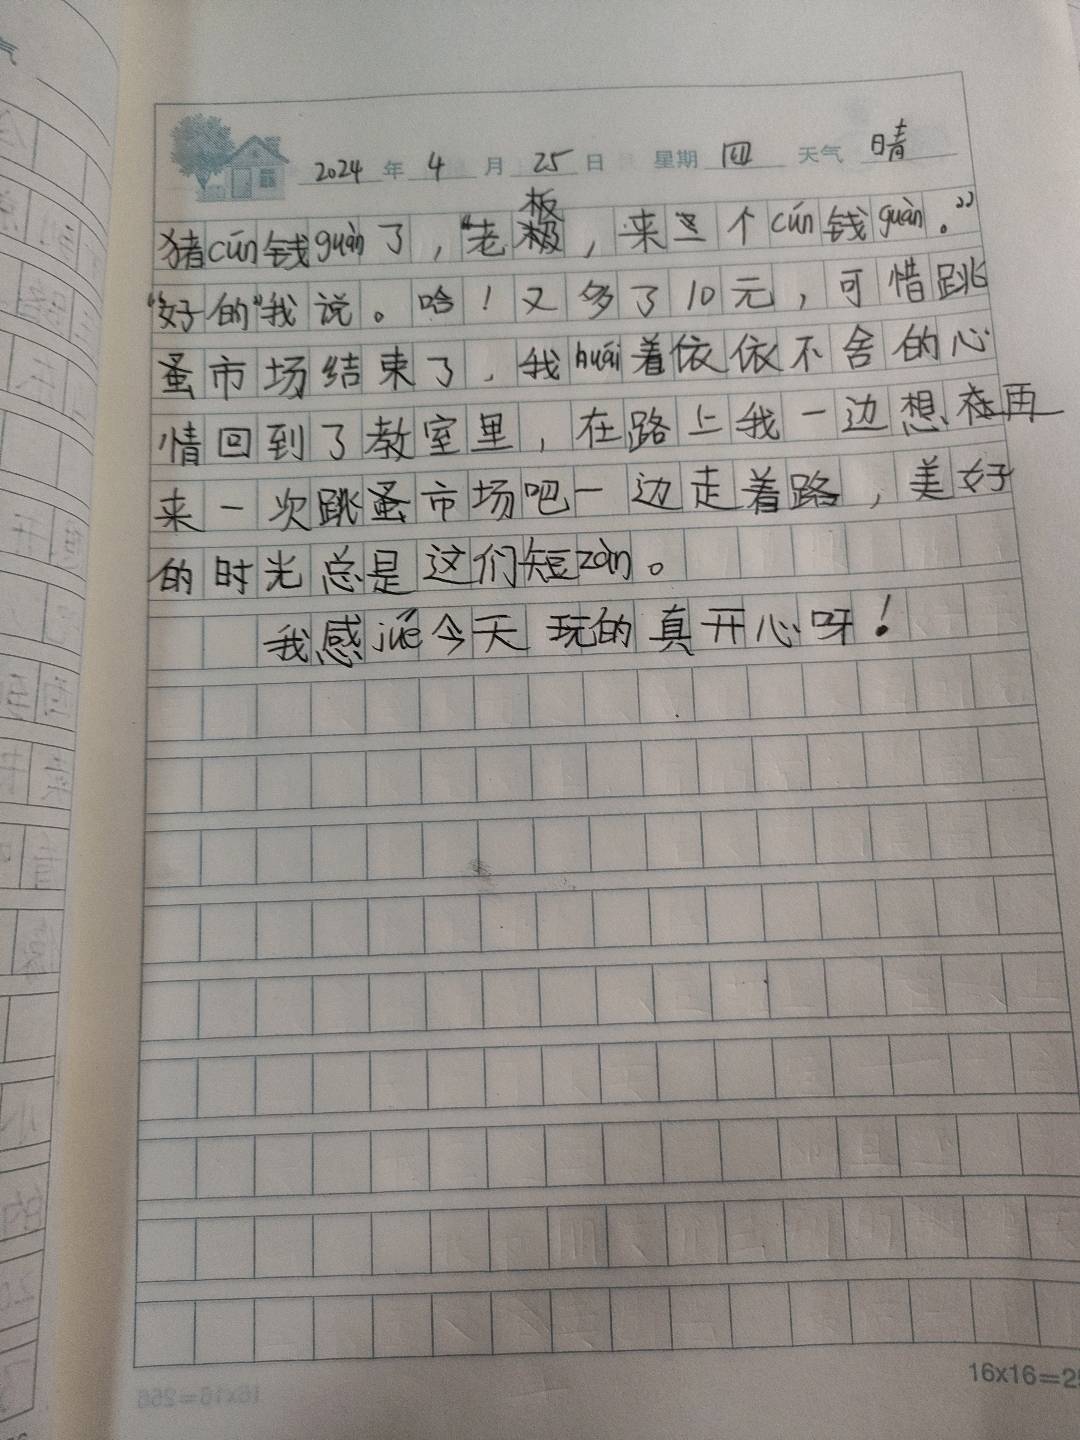 2024年4月25日 星期四 天气晴
板
猪cún钱guàn了，“老极，来三个cún钱guàn。”
“好的”我说。哈！又多了10元，可惜跳
蚤市场结束了，我huái着依依不舍的心
情回到了教室里，在路上我一边想在再
来一次跳蚤市场吧一边走着路，美好
的时光总是这们短zàn。
我感jué今天玩的真开心呀！
16x16=25
16x16=256